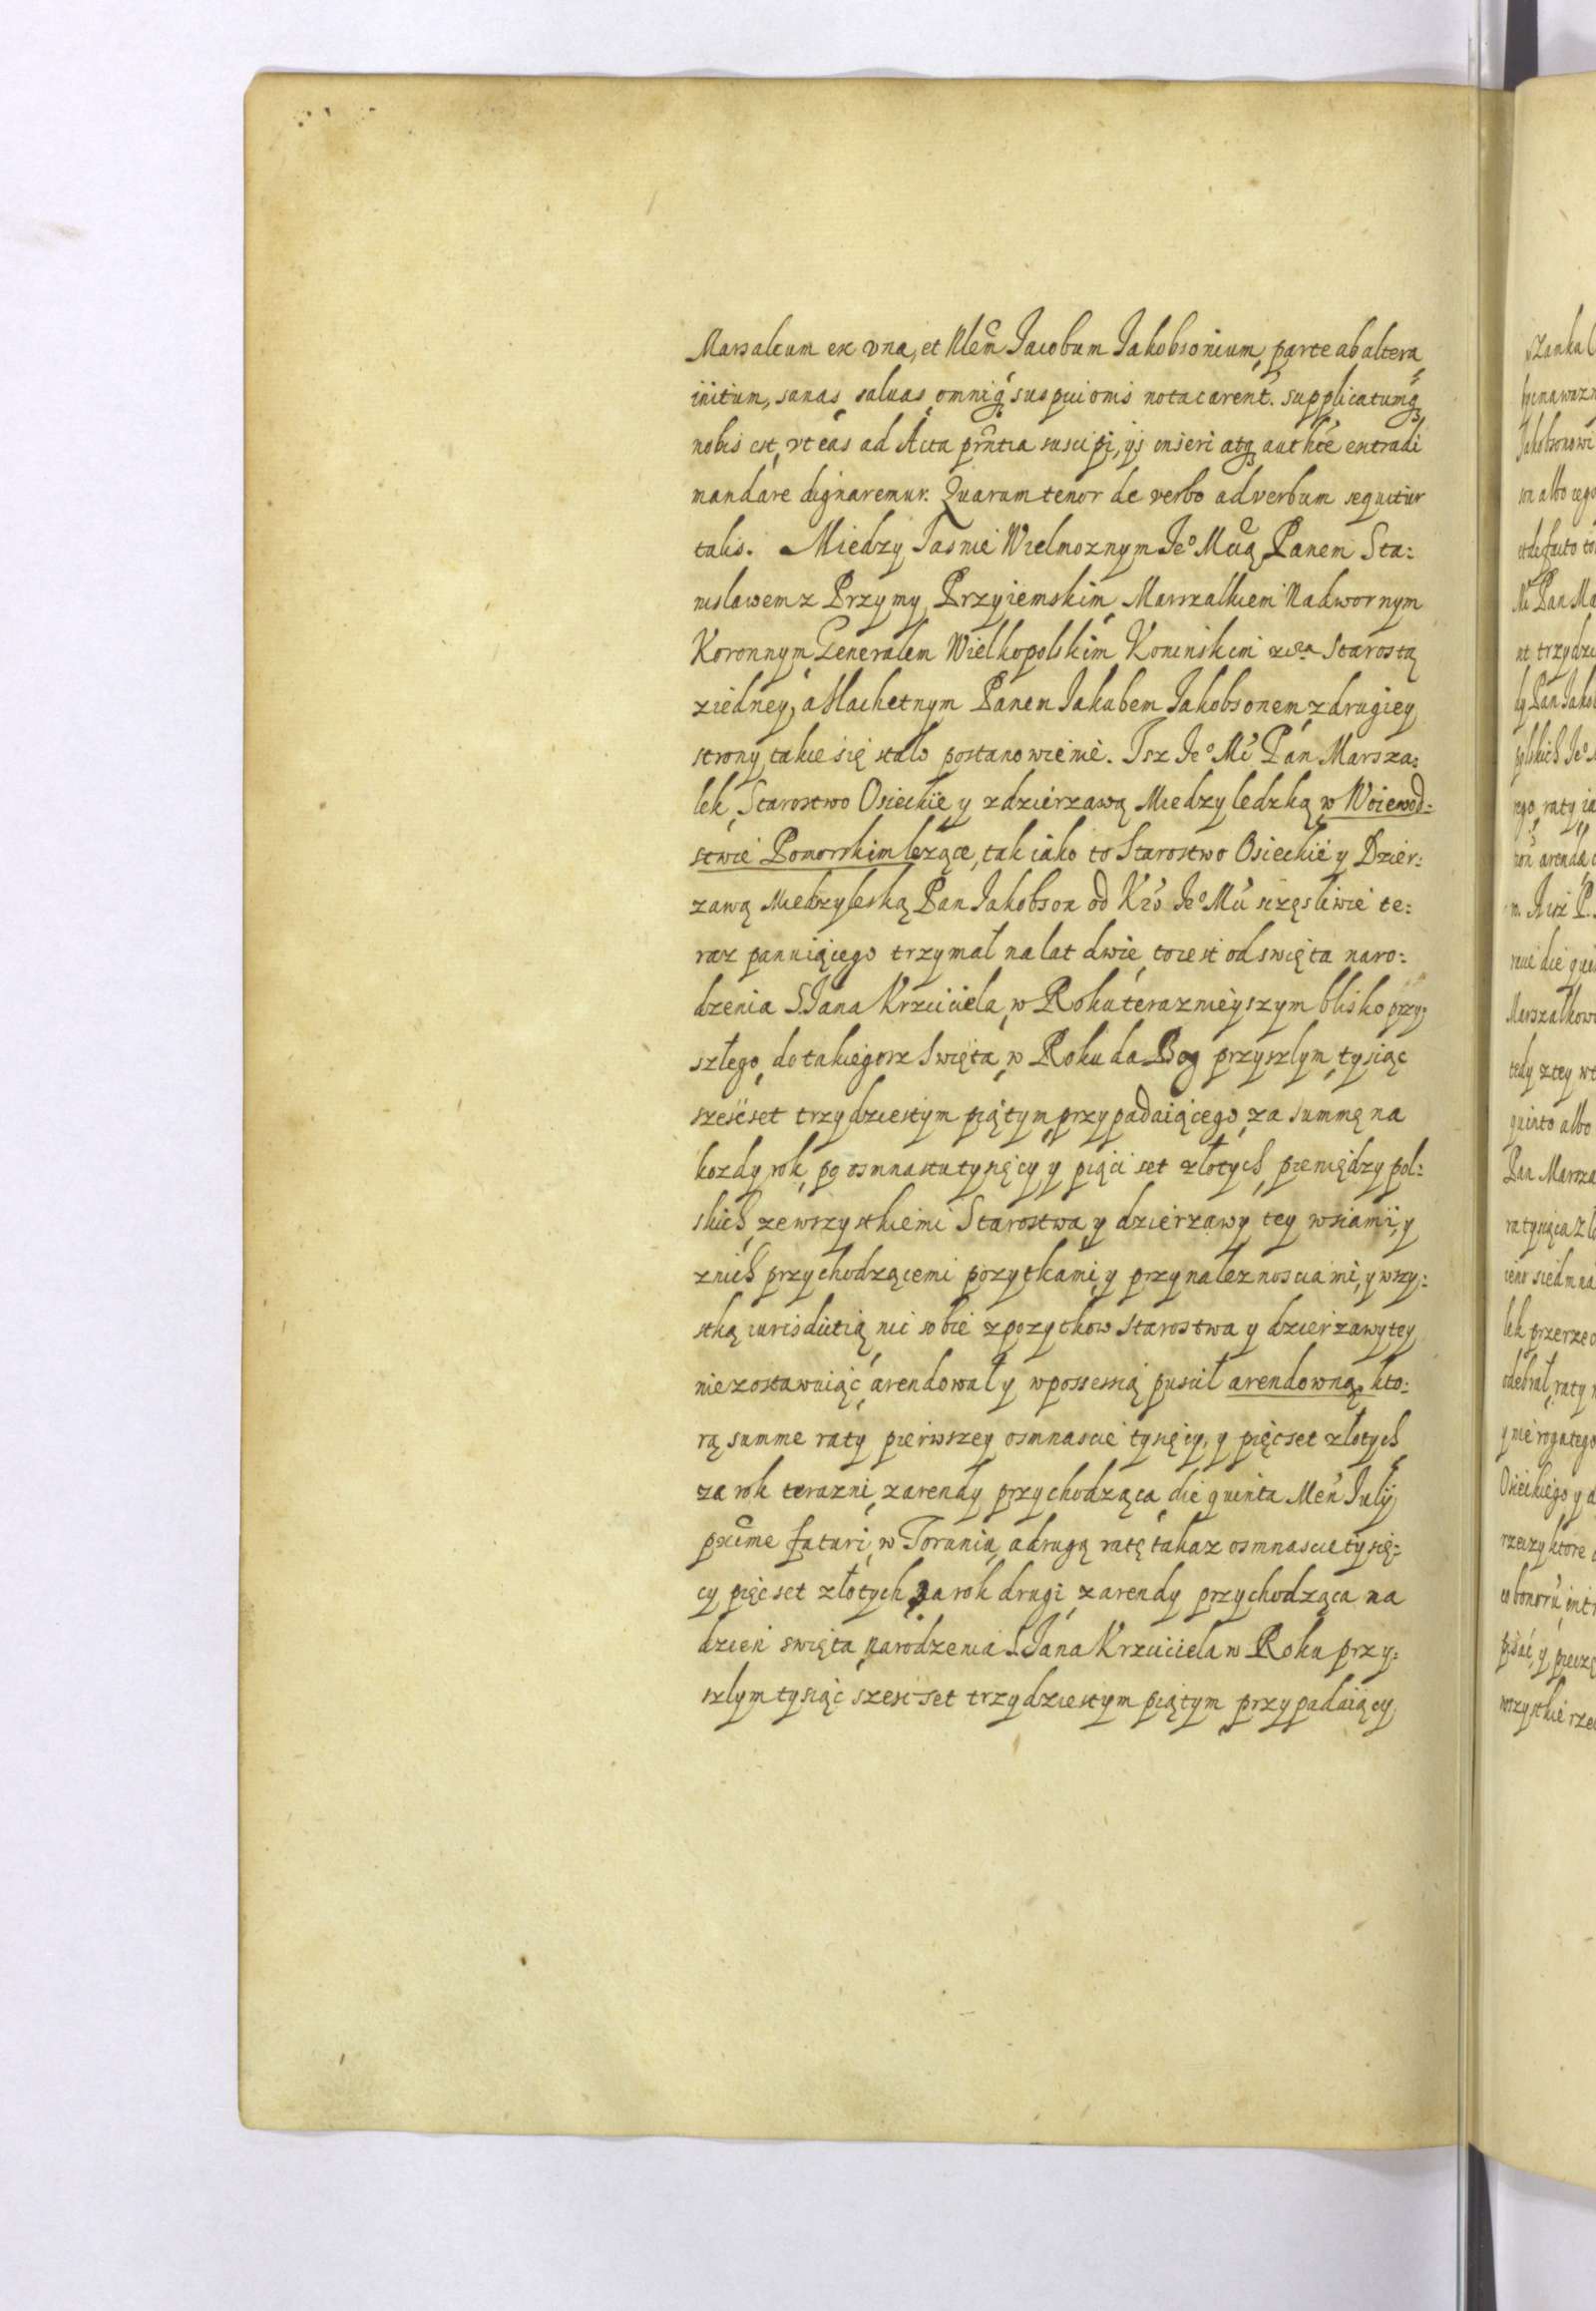 Marsalcum ex vna, et Nlem̃ Iacobum Iakobsonium, parte ab altera
initum, sanas, saluas, omniq́ suspicionis nota carent̃. supplicatumq́
nobis est, vt eas ad Acta pr̃ntia suscipi, ijs inseri atq́ auth̃ce extradi
mandare dignaremur. Quarum tenor de verbo ad verbum sequitur
talis. Miedzy Iasnie Wielmoznym Ieº Mcią Panem Sta:
nislawem z Przymy Przyiemskim, Marszalkiem Nadwornym
Koronnym, Generalem Wielkopolskim Koninskim Starostą
ziedney, a Slachetnym Panem Iakubem Iakobsonem, z drugiey
strony, takie się stało postanowienie. Isz Ieº Mć Pan Marsza:
lek, Starostwo Osieckie y zdzierzawą Miedzyledzką w Woiewod:
stwie Pomorskim lezące, tak iako to Starostwo Osieckie y Dzier:
zawą Miedzyleską Pan Iakobson od Kró Ieº Mći sczęsliwie te:
raz panuiącego trzymał na lat dwie, to iest od swięta naro:
dzenia S. Iana Krzciciela, w Roku teraznieyszym blisko przy:
szłego, do takiegosz Swięta, w Roku da Bog przyszlym, tysiąc
szescset trzydziestym piątym przypadaiącego, za summę na
kozdy rok, po osmnastu tysięcy, y pięci set złotych, pieniędzy pol:
skich, ze wszystkiemi Starostwa, y dzierzawy tey wsiami, y
znich przychodzącemi pozytkami, y przynaleznosciami, y wszy:
stką iurisdictią, nic sobie z pozytkow Starostwa y dzierzawy tey
nie zostawuiąc, arendował y w possessią puscił arendowną, kto:
rą summe raty pierwszey osmnascie tysięcy, y pięcset złotych
za rok terazni, z arendy przychodząca, die quinta Men̄ Iulij
prox̃ime futuri, w Toruniu, a drugą ratę takaz osmnascie tysię:
cy pięcset złotych za rok drugi, z arendy przychodząca na
dzien swięta, narodzenia S. Iana Krzciciela w Roku przy:
szlym tysiąc szesc set trzydziestym piątym przypadaiący